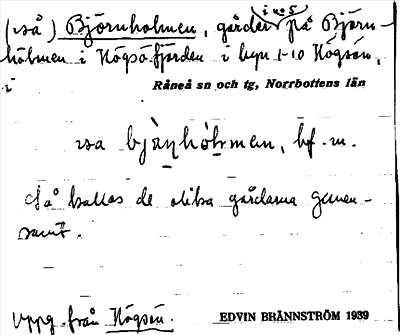 (på) Björnholmen, gårdar i no 5 på Björn-
holmen i Högsöfjärden i byn 1-10 Högsön,
i Råneå sn och tg, Norrbottens län
bf. m.
Så kallas de olika gårdarna gemen-
samt.
Uppg. från Högsön. EDVIN BRÄNNSTRÖM 1939